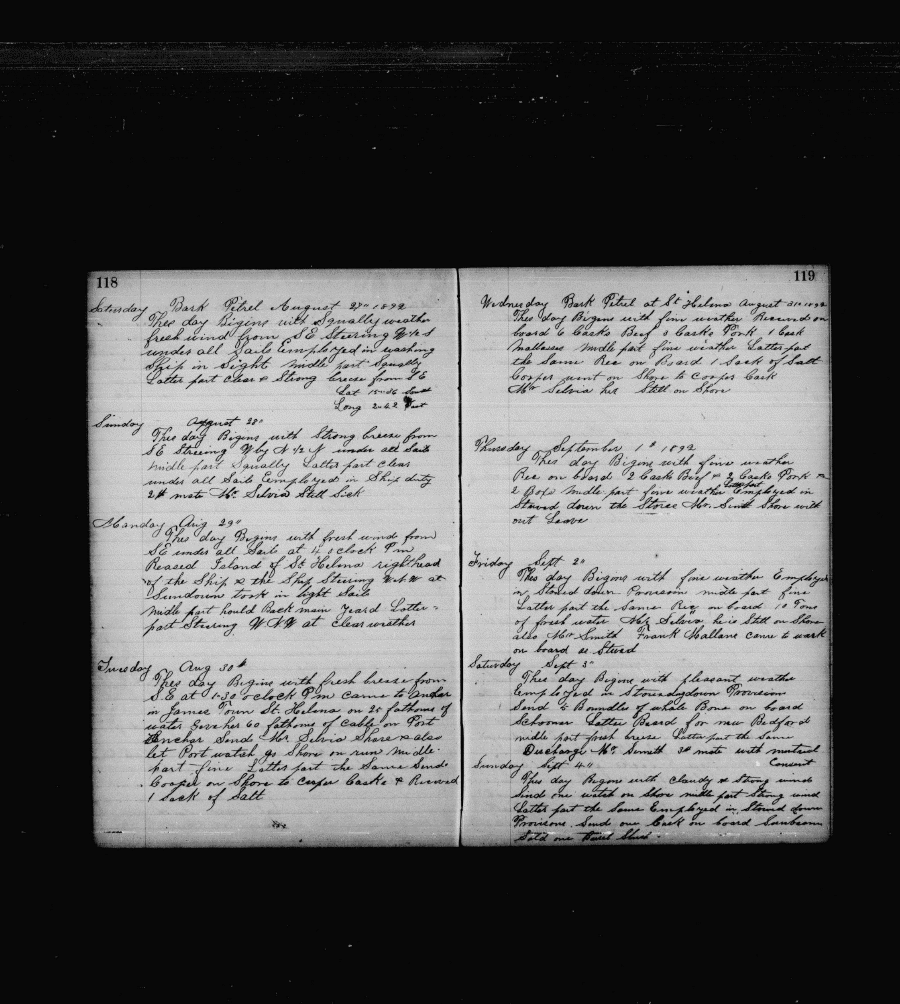 118
Saturday Bark Petrel August 27" 1892
This day Bigins with Squally weather
fresh wind from S E Steering W 1/2 S
under all Sails Employed in washing
Ship in Sight midle part Squally
Latter part clear & Strong breeze from S E
Lat 15-56 South
Long 2-42 West
Sunday August 28"
This day Bigins with Strong breeze from
S E Steering W by N 1/2 N under all Sails
midle part Squally Latter part clear
under all Sails Employed in Ship duty
2d mate Mr Selvia Still Sick
Monday Aug 29"
This day Begins with fresh wind from
S E under all Sails at 4 oclock P m
Reased Island of St Helena right head
of the Ship & the Ship Steering W N W at
Sundown took in light Sails
midle part hould Back main Yeard Latter =
part Steering W N W at clear weather
Tuesday Aug 30th
This day Begins with fresh breeze from
S.E at 1-30 oclock P m came to Anchor
in James Town St. Helena on 25 fathoms of
water Give her 60 fathoms of Cable on Port
Anchor Send Mr Selvia Shore & also
let Port watch go Shore on run midle
part fine Latter part the Same Send
Cooper on Shore to Casks & Received
1 Sack of Salt
119
Wednesday Bark Petrel at St Helena August 31st 1892
This day Bigins with fine weather Received on
board 6 Casks Beef 3 Casks Pork 1 Cask
mallasses midle part fine weather Latter part
the Same Rec on Board 1 Sack of Salt
Cooper went on Shore to Cooper Cask
Mr Selvia her Still on Shore
Thursday September 1st 1892
This day Bigins with fine weather
Rec on board 2 Casks Beef & 2 Casks Pork &
2 Boxs midle part fine weather Latter part Employed in
Stowed down the Stores Mr. Smith Shore with
out Leave
Friday Sept 2"
This day Bigins with fine weather Employed
in Stowed down Provisions midle part fine
Latter part the Same Rec on board 10 Tons
of fresh water Mr Selvia he is Still on Shore
also Mr Smith Frank Mallane came to work
on board as Stward
Saturday Sept 3"
This day Begins with pleasant weather
Employed in down Provision
Send 5 Bundles of whale Bone on board
Schooner Lottie Beard for new Bedford
midle part fresh breeze Latter part the Same
Discharge Mr. Smith 3d mate with muteral
Consent
Sunday Sept 4"
This day Begins with Claudy & Strong winds
Send one watch on Shore midle part Strong wind
Latter part the Same Employed in Stowed down
Provisions. Send one Cask on board Sunbeam
Sold one